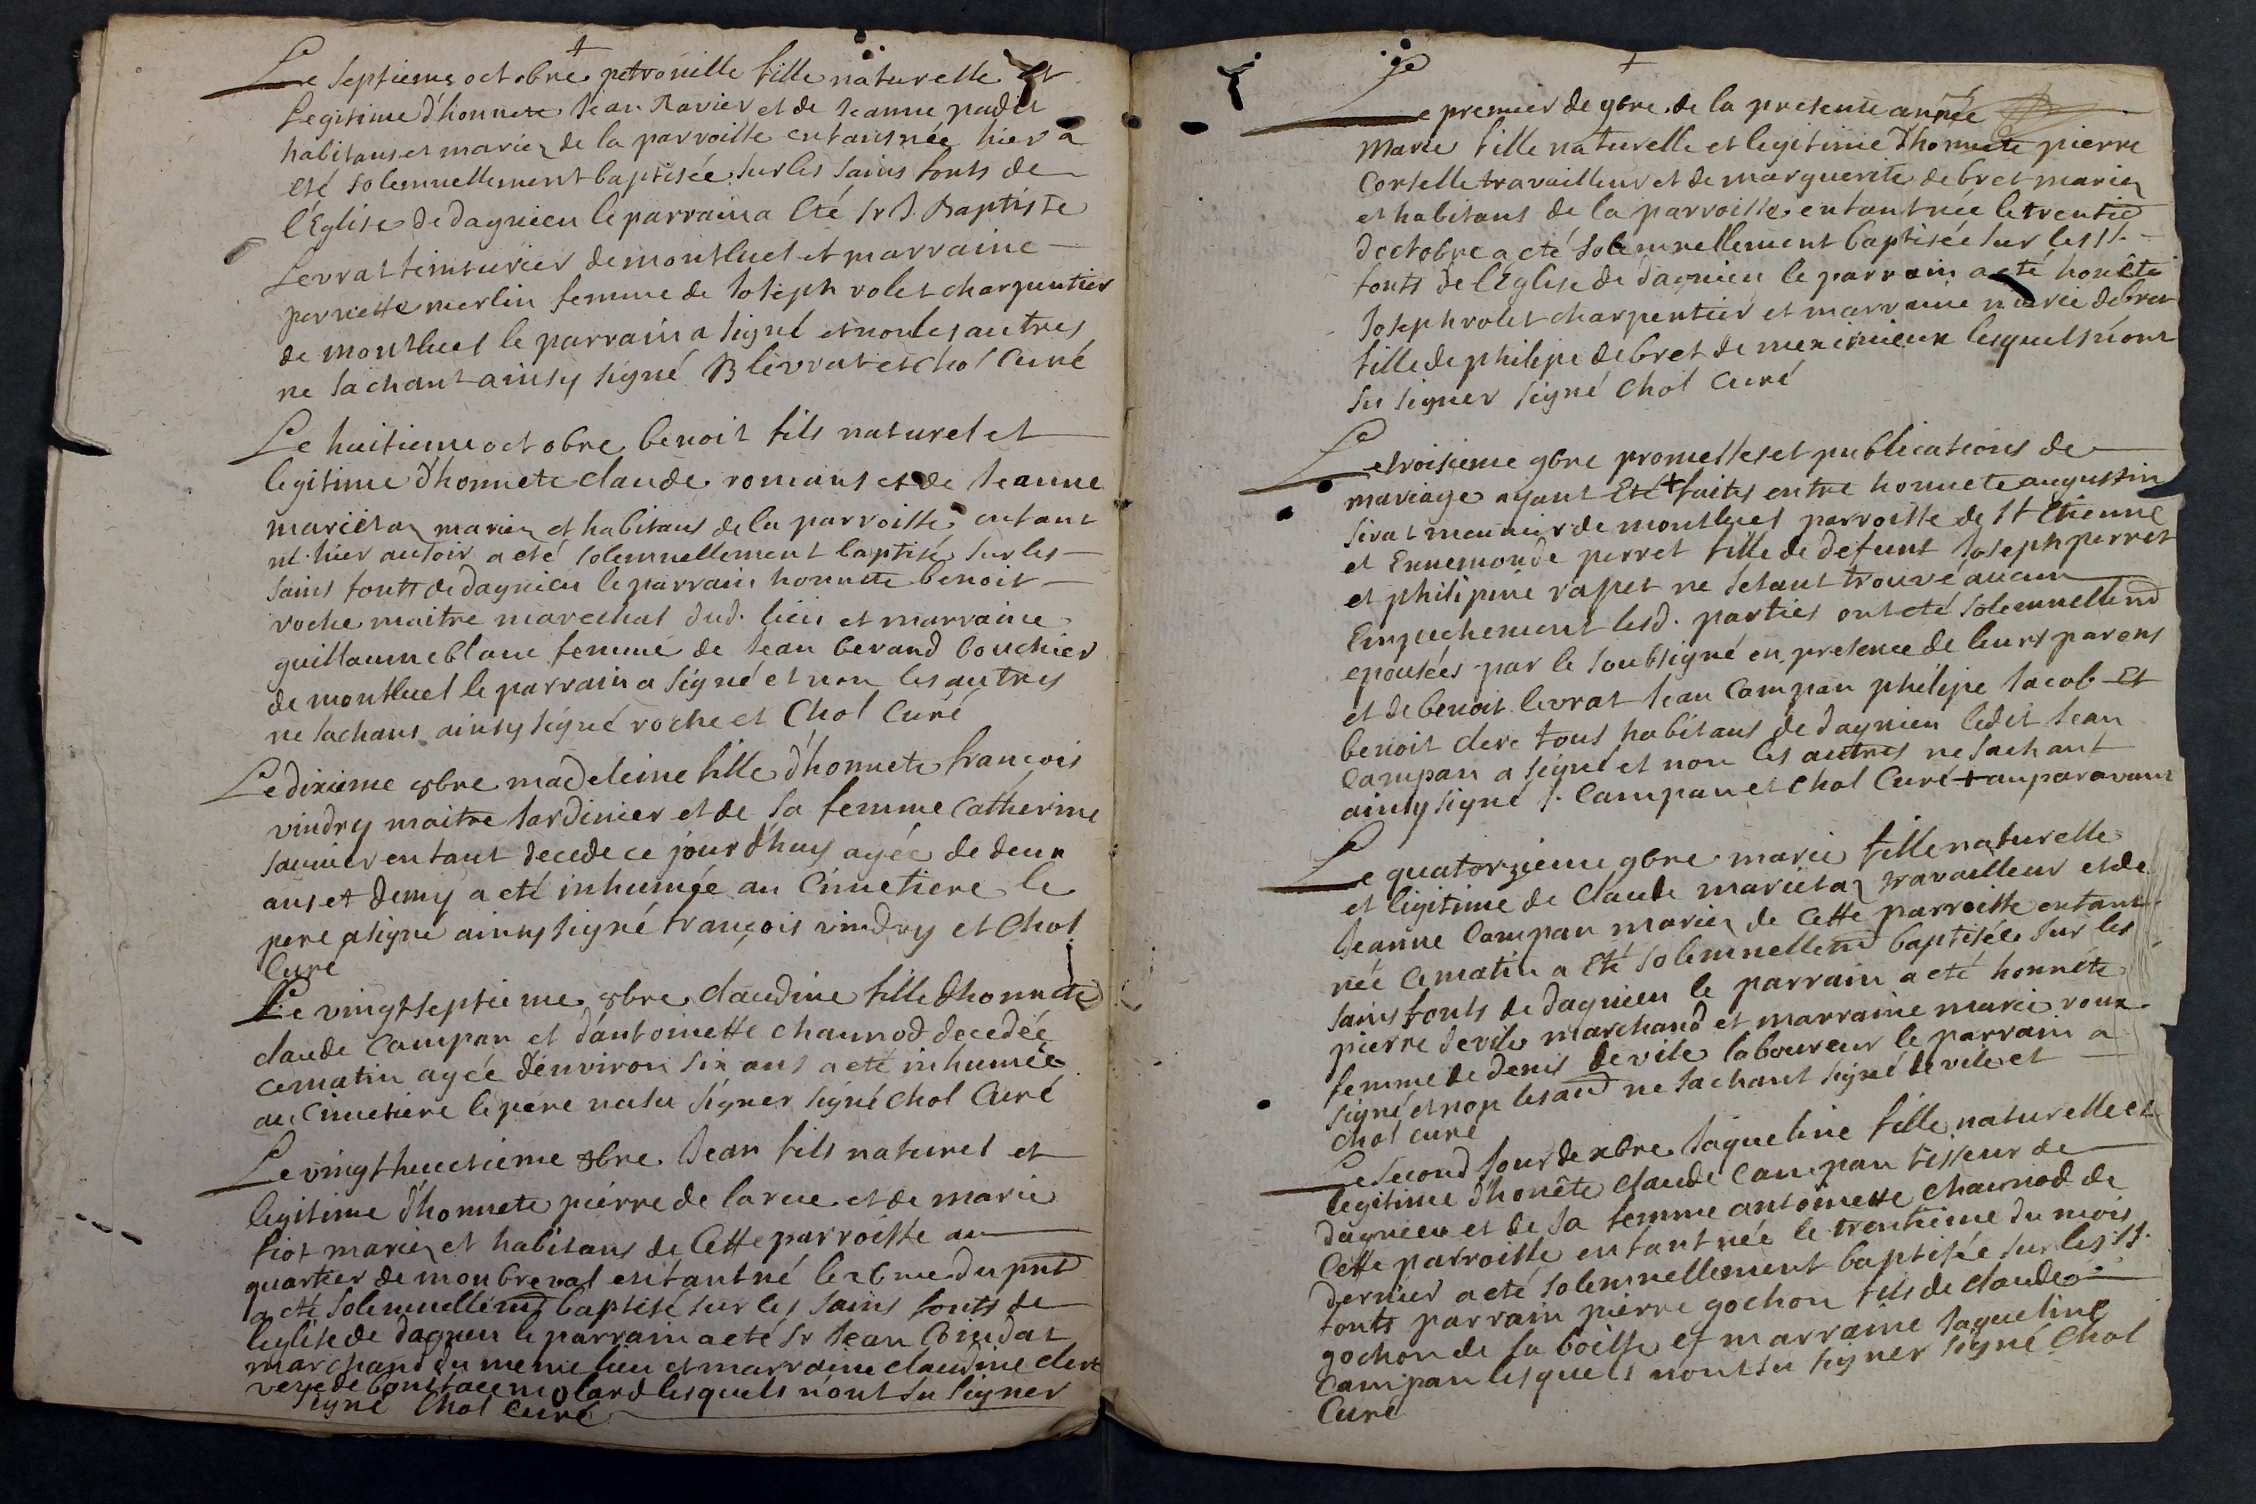 Le septieme octobre petronille fille naturelle et
Legitime d'honnete Jean Ravier et de Jeanne
habitans et mariez de la parroisse enfant née hier a
eté solemnellement baptisée sur les sains fonts de
l'Eglise de dagnieu le parrain a eté Sr J. Baptiste
Levrat teinturier de montluel et marraine
pernette merlin femme de Joseph volet charpentier
de montluel le parrain a signé et non les autres
ne sachant ainsy signé B levrat et Chol Curé
Le huitieme octobre benoit fils naturel et
legitime d'honnete claude romans et de Jeanne
marietaz mariez et habitans de la parroisse enfant
né hier au soir a eté solemnellement baptisé sur les
sains fonts de dagnieu le parrain honnete benoit
roche maitre marechal dud. lieu et marraine
guillaume blanc femme de Jean berand bouchier
de montluel le parrain a signé et non les autres
ne sachans ainsy signé roche et Chol Curé
Le dixieme 8bre madeleine fille d'honnete françois
vindry maitre Jardinier et de sa femme Catherine
enfant decede ce jourd'huy agée de deux
ans et demy a eté inhumée au Cimetiere le
pere a signé ainsy signé françois vindry et Chol
Curé
Le vingtseptieme 8bre claudine fille d'honnete
claude Campan et d'antoinette chaunod decedée
ce matin agée d'environ six ans a eté inhumée
au Cimetiere le pere na su signer signé Chol Curé
Le vingthuictieme 8bre Jean fils naturel et
legitime d'honnete pierre de la rue et de marie
fiot mariez et habitans de Cette parroisse au
quartier de monbreval enfant né le du pnt
a eté solemnellemt baptisé sur les sains fonts de
leglise de dagnieu le parrain a eté Sr Jean Coindat
marchand du meme lieu et marraine claudine clere
veve de boniface molard lesquels n'ont su signer
signé Chol Curé
Le premier de 9bre de la presente année
Marie fille naturelle et legitime d'honnete pierre
Corselle travailleur et de marguerite debret mariez
et habitans de la parroisse enfant née le trentie
d'octobre a eté solemnellement baptisée sur les SS.
fonts de l'Eglise de dagnieu le parrain a eté honête
Joseph volet charpentier et marraine marie debret
fille de philipe debret de meximieux lesquels n'ont
su signer signé Chol Curé
Le troisieme 9bre promesses et publications de
mariage ayant Eté + faites entre honnete augustin
sirat meunier de montluel parroisse de St Etienne
et Ennemonde perret fille de defunt Joseph perret
et philipine rapet ne s'etant trouvé aucun
Empechement lesd. parties ont eté solemnellemt
epousées par le soubsigné en presence de leurs parens
et de benoit levrat Jean Campan philipe Jacob Et
benoit clere tous habitans de dagnieu ledit Jean
Campan a signé et non les autres ne sachant
ainsy signé J. Campan et Chol Curé + auparavant
Le quatorzieme 9bre marie fille naturelle
et legitime de Claude marietaz travailleur et de
Jeanne Campan mariez de Cette parroisse enfant
née ce matin a eté solemnellemt baptisée sur les
sains fonts de dagnieu le parrain a eté honnête
pierre devile marchand et marraine marie roux
femme de denis devile laboureur le parrain a
signé et non les aud ne sachant signé devile et
Chol curé
Le second Jour de xbre Jaqueline fille naturelle et
legitime d'honête claude Campan tisseur de
dagnieu et de sa femme antoinette chaunod de
Cette parroisse enfant née le trentieme du mois
dernier a eté solemnellement baptisée sur les SS.
fonts parrain pierre gochon fils de claude
gochon de la boisse et marraine Jaqueline
Campan lesquels n'ont su signer signé Chol
Curé